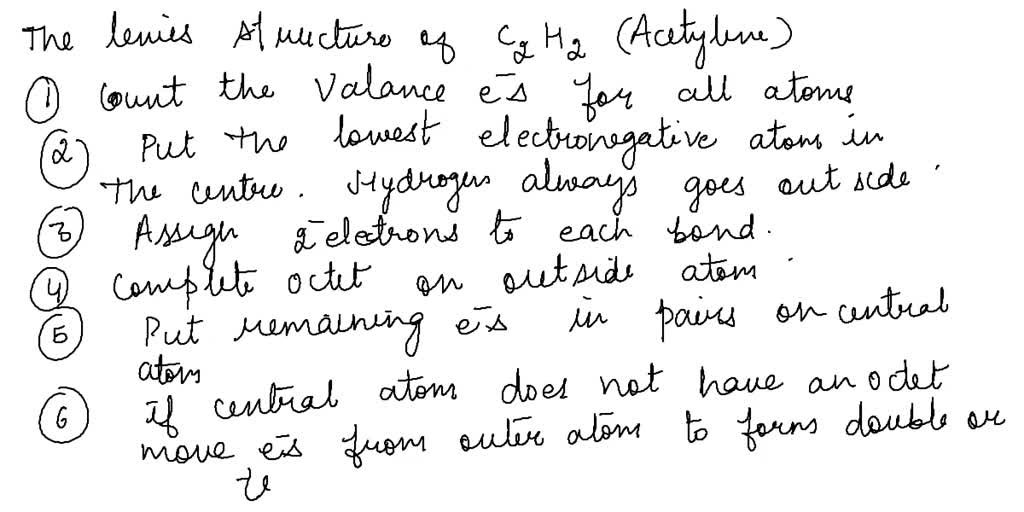 The lewies structure of C₂H₂ (Acetylene)
① Count the Valance e⁻s for all atoms
② Put the lowest electronegative atom in
the centre. Hydrogen always goes outside.
③ Assign 2 electrons to each bond.
④ Complete octet on outside atom.
⑤ Put remaining e⁻s in pairs on central
atom
⑥ if central atom does not have an octet
move e⁻s from outer atom to form double or